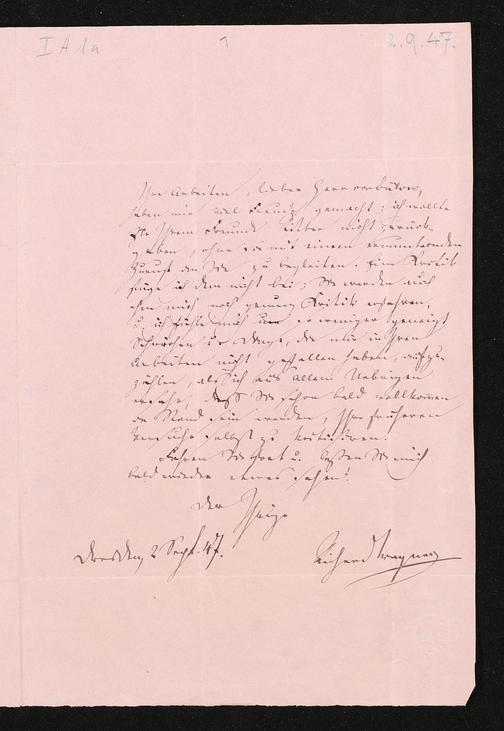 I A 1a 1 2.9.47.
Ihre Arbeiten, lieber Herr von Bülow,
haben mir viel Freude gemacht; ich wollte
sie Ihrem Freunde Ritter nicht zurück-
geben, ohne sie mit einem ermunternden
Zuruf an Sie zu begleiten. Eine Kritik
füge ich dem nicht bei; Sie werden auch
ohne mich noch genug Kritik erfahren,
u. ich fühle mich um so weniger geneigt
Schwächen u. Dinge, die mir in Ihren
Arbeiten nicht gefallen haben, aufzu-
zählen, als ich aus allem Uebrigen
ersehe, daß Sie schon bald vollkommen
im Stand sein werden, Ihre früheren
Versuche selbst zu kritisiren.
Fahren Sie fort u. lassen Sie mich
bald wieder etwas sehen!
Der Ihrige
Dresden, 2 Sept. 47.
Richard Wagner